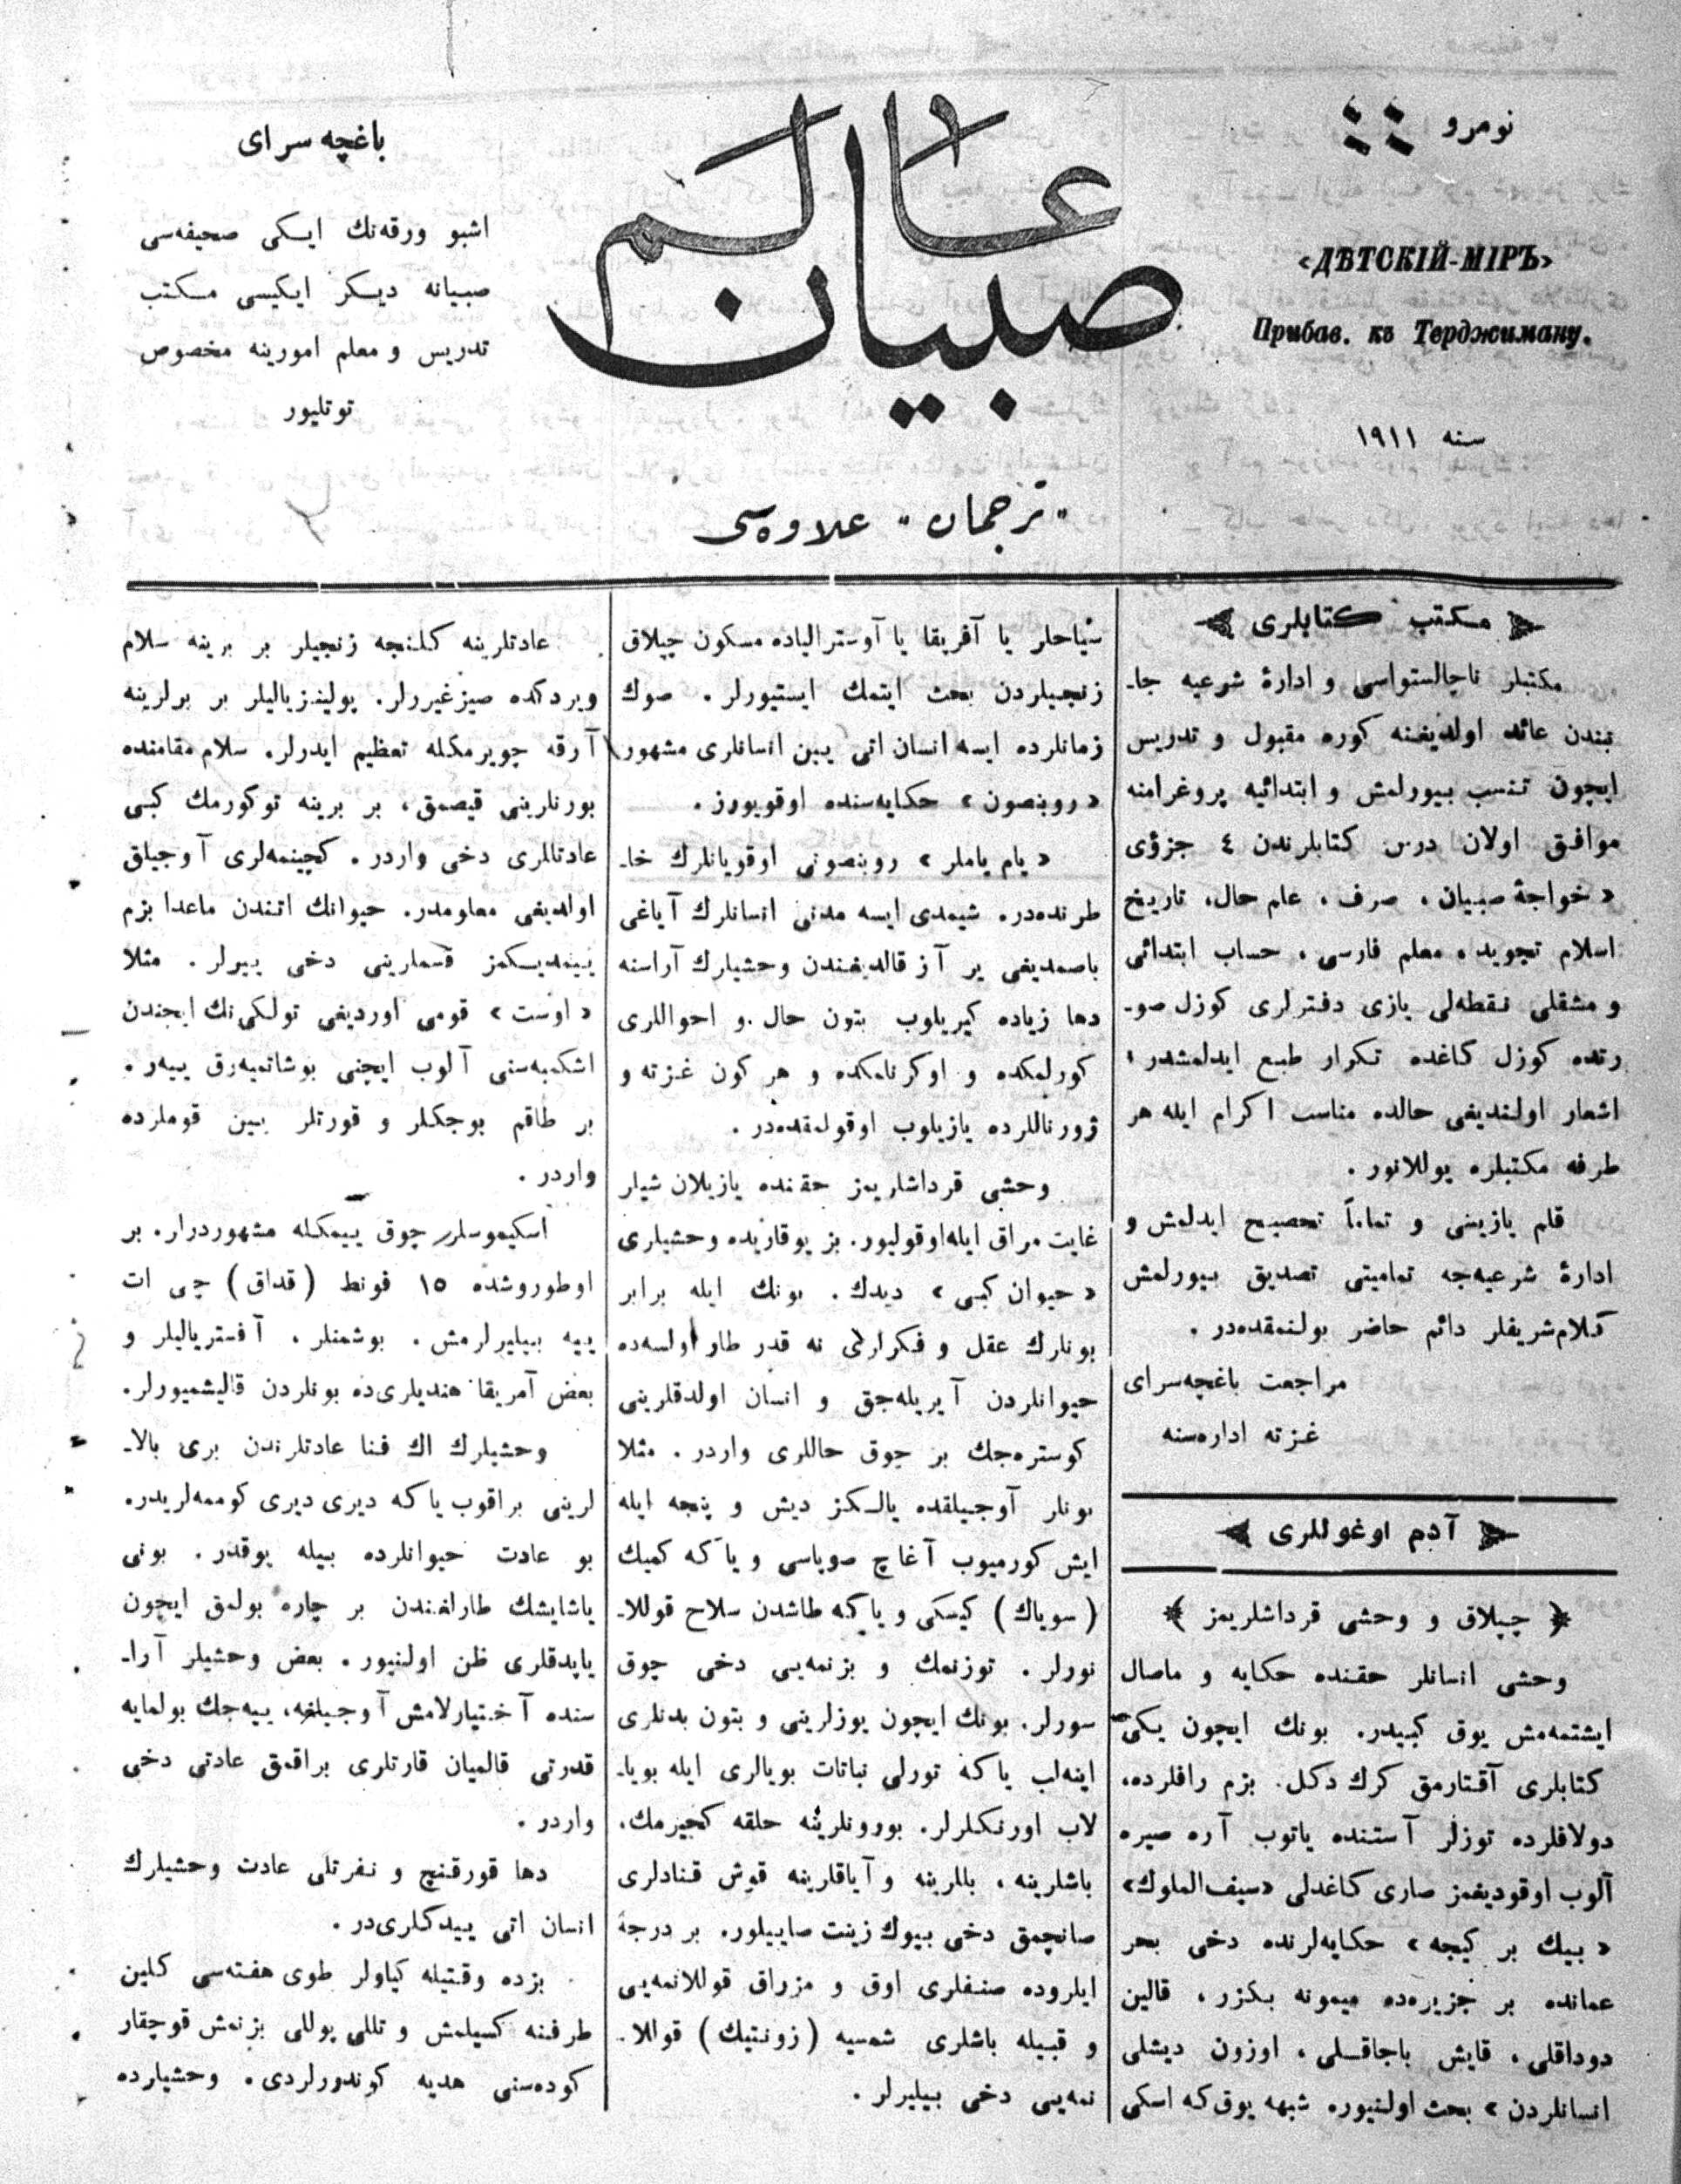 نومرو
«ДѢТСКІЙ-МІРЪ»
Прибав. къ Терджиману.
سنه ١٩١١
عالم
صبيان
باغچه سراى
اشبو ورقه‌نك ايكى صحيفه‌سى
صبيانه ديكر ايكيسى مكتب
تدريس و معلم امورينه مخصوص
توتليور
«ترجمان» علاوه‌سى
مكتب كتابلرى
مكتبلر ناچالستواسى و ادارهٔ شرعيه جا-
نبندن عائد اولديغنه كوره مقبول و تدريس
ايچون تنسب بيورلمش و ابتدائيه پروغرامنه
موافق اولان درس كتابلرندن ٤ جزؤى
«خواجهٔ صبيان، صرف، علم حال، تاريخ
اسلام تجويد، معلم فارسى، حساب ابتدائى
و مشقلى نقطه‌لى يازى دفترلرى كوزل صو-
رتده كوزل كاغده تكرار طبع ايدلمشدر،
اشعار اولنديغى حالده مناسب اكرام ايله هر
طرفه مكتبلره يوللانور.
قلم يازيسى و تماماً تصحيح ايدلمش و
ادارهٔ شرعيه‌جه تماميتى تصديق بيورلمش
كلام‌شريفلر دائم حاضر بولنمقده‌در.
مراجعت باغچه‌سراى
غزته اداره‌سنه
آدم اوغوللرى
﴿ چپلاق و وحشى قرداشلريمز ﴾
وحشى انسانلر حقنده حكايه و ماصال
ايشتمه‌مش يوق كبيدر. بونك ايچون يكى
كتابلرى آقتارمق كرك دكل. بزم رافلرده،
دولافلرده توزلر آستنده ياتوب آره صيره
آلوب اوقوديغمز صارى كاغدلى «سيف‌الملوك»
«بيك بر كيجه» حكايه‌لرنده دخى بحر
عمانده بر جزيره‌ده ميمونه بكزر، قالين
دوداقلى، قايش باجاقلى، اوزون ديشلى
انسانلردن» بحث اولنيوره شبهه يوق‌كه اسكى
سياحلر يا آفريقا يا آوستراليا‌ده مسكون چپلاق
زنجيلردن بحث ايتمك ايستيورلر. صوك
زمانلرده ايسه انسان اتى يين انسانلرى مشهور
«روبنصون» حكايه‌سنده اوقويورز.
«يام ياملر» روبنصونى اوقويانلرك خا-
طرنده‌در. شيمدى ايسه مدنى انسانلرك آياغى
باصمديغى ير آز قالديغندن وحشيلرك آراسنه
دها زياده كيريلوب بتون حال و احواللرى
كورلمكده و اوكرنلمكده و هر كون غزته و
ژورناللرده يازيلوب اوقولمقده‌در.
وحشى قرداشلريمز حقنده يازيلان شيلر
غايت مراق ايله‌اوقوليور. بز يوقاريده وحشيلرى
«حيوان كبى» ديدك. بونك ايله برابر
بونلرك عقل و فكرلرى نه قدر طار اولسه‌ده
حيوانلردن آيريله‌جق و انسان اولدقلرينى
كوستره‌جك بر چوق حاللرى واردر. مثلا
بونلر آوجيلقده يالكز ديش و پنجه ايله
ايش كورميوب آغاچ صوپاسى و ياكه كميك
(سوياك) كيسكى و ياكه طاشدن سلاح قوللا-
نورلر. توزنمك و بزنمه‌يى دخى چوق
سورلر. بونك ايچون يوزلرينى و بتون بدنلرى
اينه‌لب ياكه تورلى نباتات بويالرى ايله بويا-
لاب اورنكلرلر. بورونلرينه حلقه كچيرمك،
باشلرينه، بللرينه و آياقلرينه قوش قنادلرى
صانچمق دخى بيوك زينت صاييلور. بر درجه
ايلروده صنفلرى اوق و مزراق قوللانمه‌يى
و قبيله باشلرى شمسيه (زونتيك) قوللا-
نمه‌يى دخى بيليرلر.
عادتلرينه كلنجه زنجيلر بر برينه سلام
ويردكده صيزغيررلر. پولينزياليلر بر برلرينه
آرقه چويرمكله تعظيم ايدرلر. سلام مقامنده
بورنلرينى قيصمق، بر برينه توكورمك كبى
عادتلرى دخى واردر. كچينمه‌لرى آوجيلق
اولديغى معلومدر. حيوانك اتندن ماعدا بزم
ييمديكمز قسملرينى دخى ييرلر. مثلا
«اوست» قومى اورديغى تولكى‌نك ايچندن
اشكمبه‌سنى آلوب ايچنى بوشاتميه‌رق ييه‌ر.
بر طاقم بوجكلر و قورتلر ييين قوملرده
واردر.
اسكيموسلر چوق ييمكله مشهوردرلر. بر
اوطوروشده ١٥ فونط (قداق) چى ات
ييه بيليرلرمش. بوشمنلر، آفسترياليلر و
بعض آمريقا هنديلرى‌ده بونلردن قاليشميورلر.
وحشيلرك اك فنا عادتلرندن برى بالا-
لرينى براقوب ياكه ديرى ديرى كوممه‌لريدر.
بو عادت حيوانلرده بيله يوقدر. بونى
ياشايشك طارلغندن بر چاره بولمق ايچون
ياپدقلرى ظن اولنيور. بعض وحشيلر آرا-
سنده آختيارلامش آوجيلغه، ييه‌جك بولمايه
قدرتى قالميان قارتلرى براقمق عادتى دخى
واردر.
دها قورقنج و نفرتلى عادت وحشيلرك
انسان اتى ييدكلرى‌در.
بزده وقتيله كياولر طوى هفته‌سى كلين
طرفنه كسيلمش و تللى پوللى بزنمش قوچقار
كوده‌سنى هديه كوندورلردى. وحشيلرده